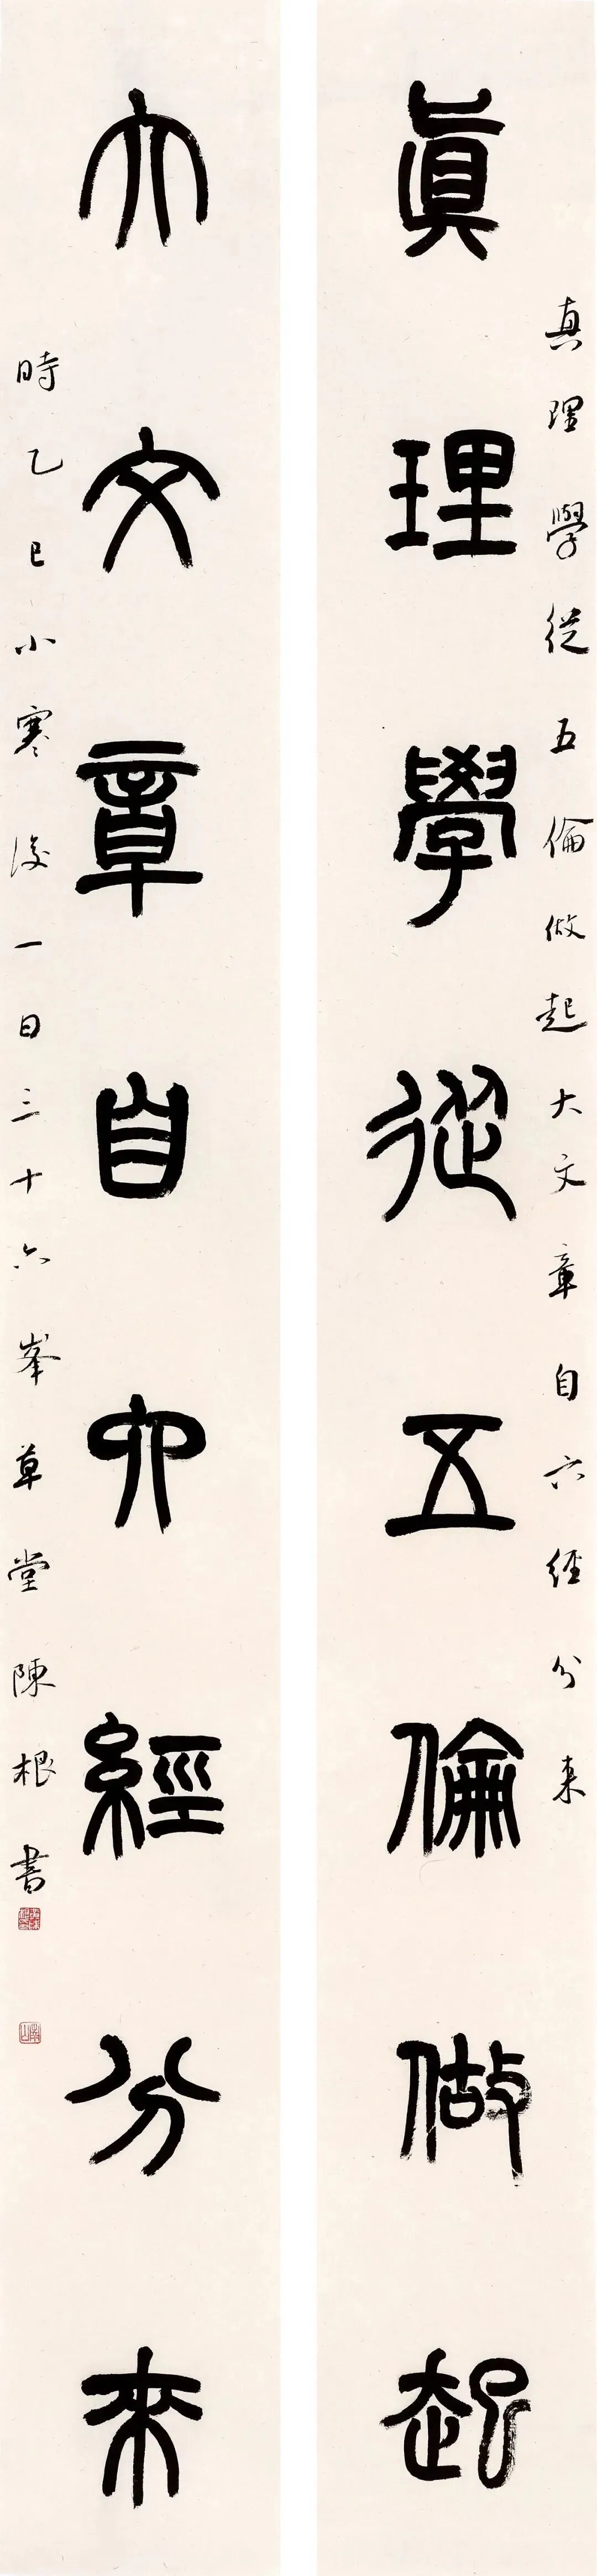 真理學從五倫做起大文章自六經分来
眞理學從五倫做起
大文章自六經分來
時乙巳小寒後一日三十六峯草堂陳根書